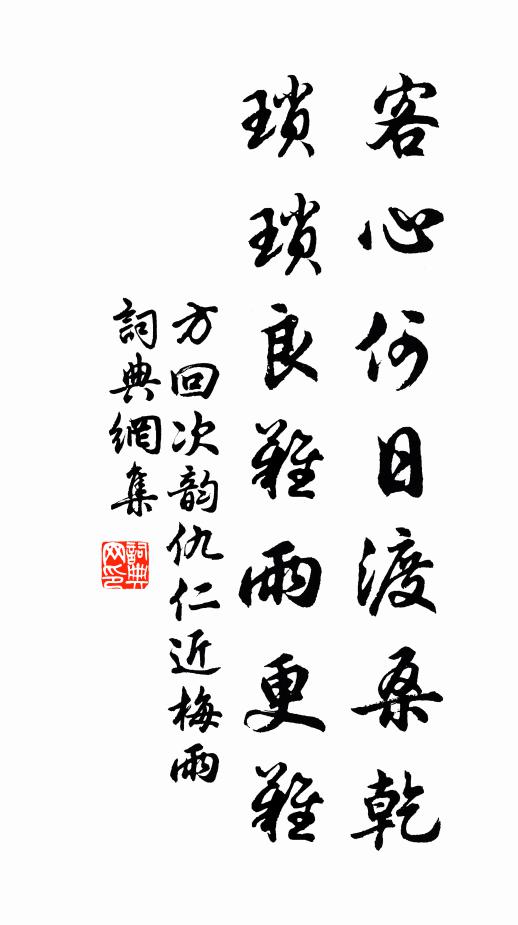 客心何日渡桑乾
瑣瑣良難雨更難
方回次韵仇仁近梅雨
詞典網集
詞典
网印